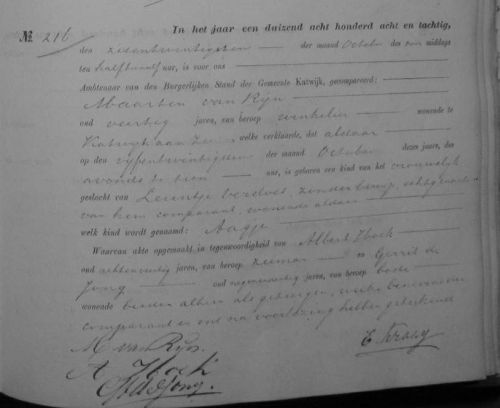 № 216 In het jaar een duizend acht honderd acht en tachtig,
den zesentwintigsten der maand October des voor middags
ten half twaalf uur, is voor ons
Ambtenaar van den Burgerlijken Stand der Gemeente Katwijk, gecompareerd:
Maarten van Rijn
oud veertig jaren, van beroep winkelier wonende te
Katwijk aan Zee, welke verklaarde, dat aldaar
op den vijfentwintigsten der maand October dezes jaars, des
avonds te tien uur, is geboren een kind van het vrouwelijk
geslacht van Leuntje Verdoes, zonder beroep, echtgenoote
van hem comparant, wonende aldaar
welk kind wordt genaamd: Aagje
Waarvan akte opgemaakt in tegenwoordigheid van Albert Hoek
oud achtenveertig jaren, van beroep zeeman en Gerrit de
Jong oud jaren, van beroep bode
wonende beiden alhier als getuigen, welke benevens
comparant en ons na voorlezing hebben geteekend
M van Rijn.
A Hoek
G de Jong.